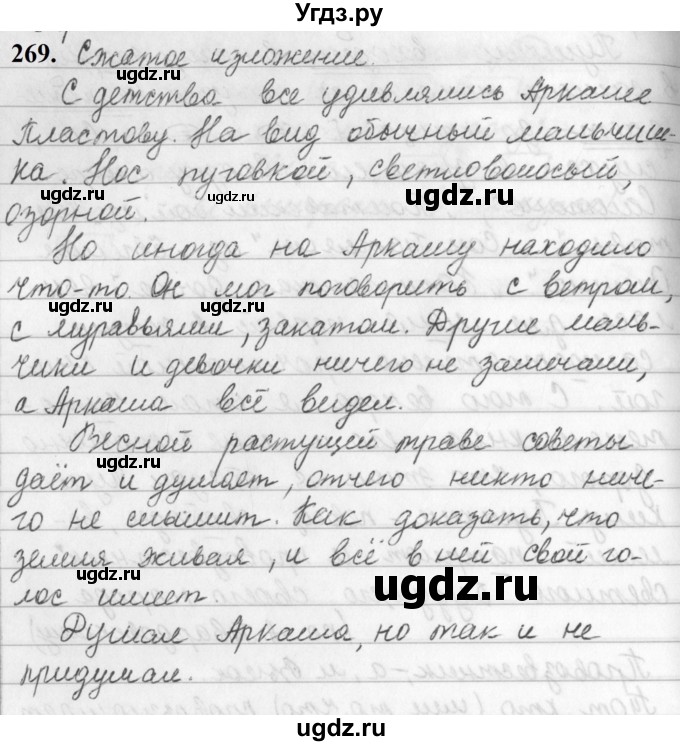 Угдз.ру
269. Сжатое изложение.
ugdz.ru
С детства все удивлялись Аркаше
Пластову. На вид обычный мальчиш-
ка. Нос пуговкой, светловолосый,
ugdz.ru ugdz.ru
озорной.
Но иногда на Аркашу находило
что-то. Он мог поговорить с ветром,
ugdz.ru ugdz.ru
с муравьями, закатом. Другие маль-
чики и девочки ничего не замечали,
а Аркаша всё видел.
Весной растущей траве советы
ugdz.ru
даёт и думает, отчего никто ниче-
го не слышит. Как доказать, что
земля живая, и всё в ней свой го-
ugdz.ru ugdz.ru
лос имеет.
Думал Аркаша, но так и не
придумал.
ugdz.ru
ugdz.ru